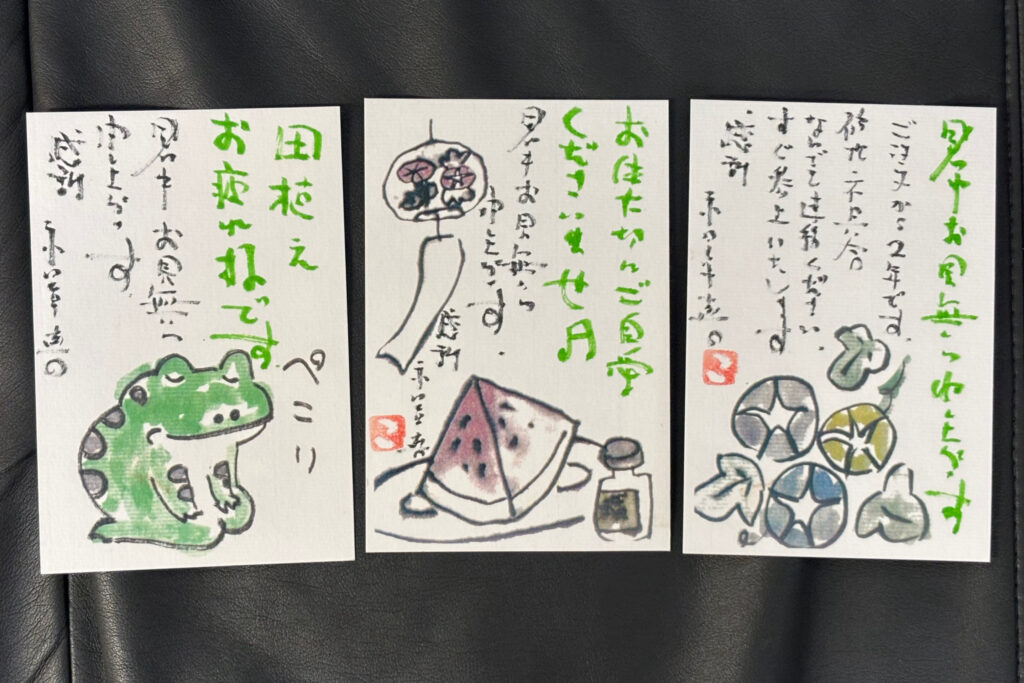 田植え
お疲れ様です
ぺこり
暑中お見舞い
申し上げます
感謝
お体大切にご自愛
くださいませ
暑中お見舞い
申し上げます
感謝
暑中お見舞い申し上げます
から2年です
不具合
なんでも連絡ください
すぐ参上いたします
感謝